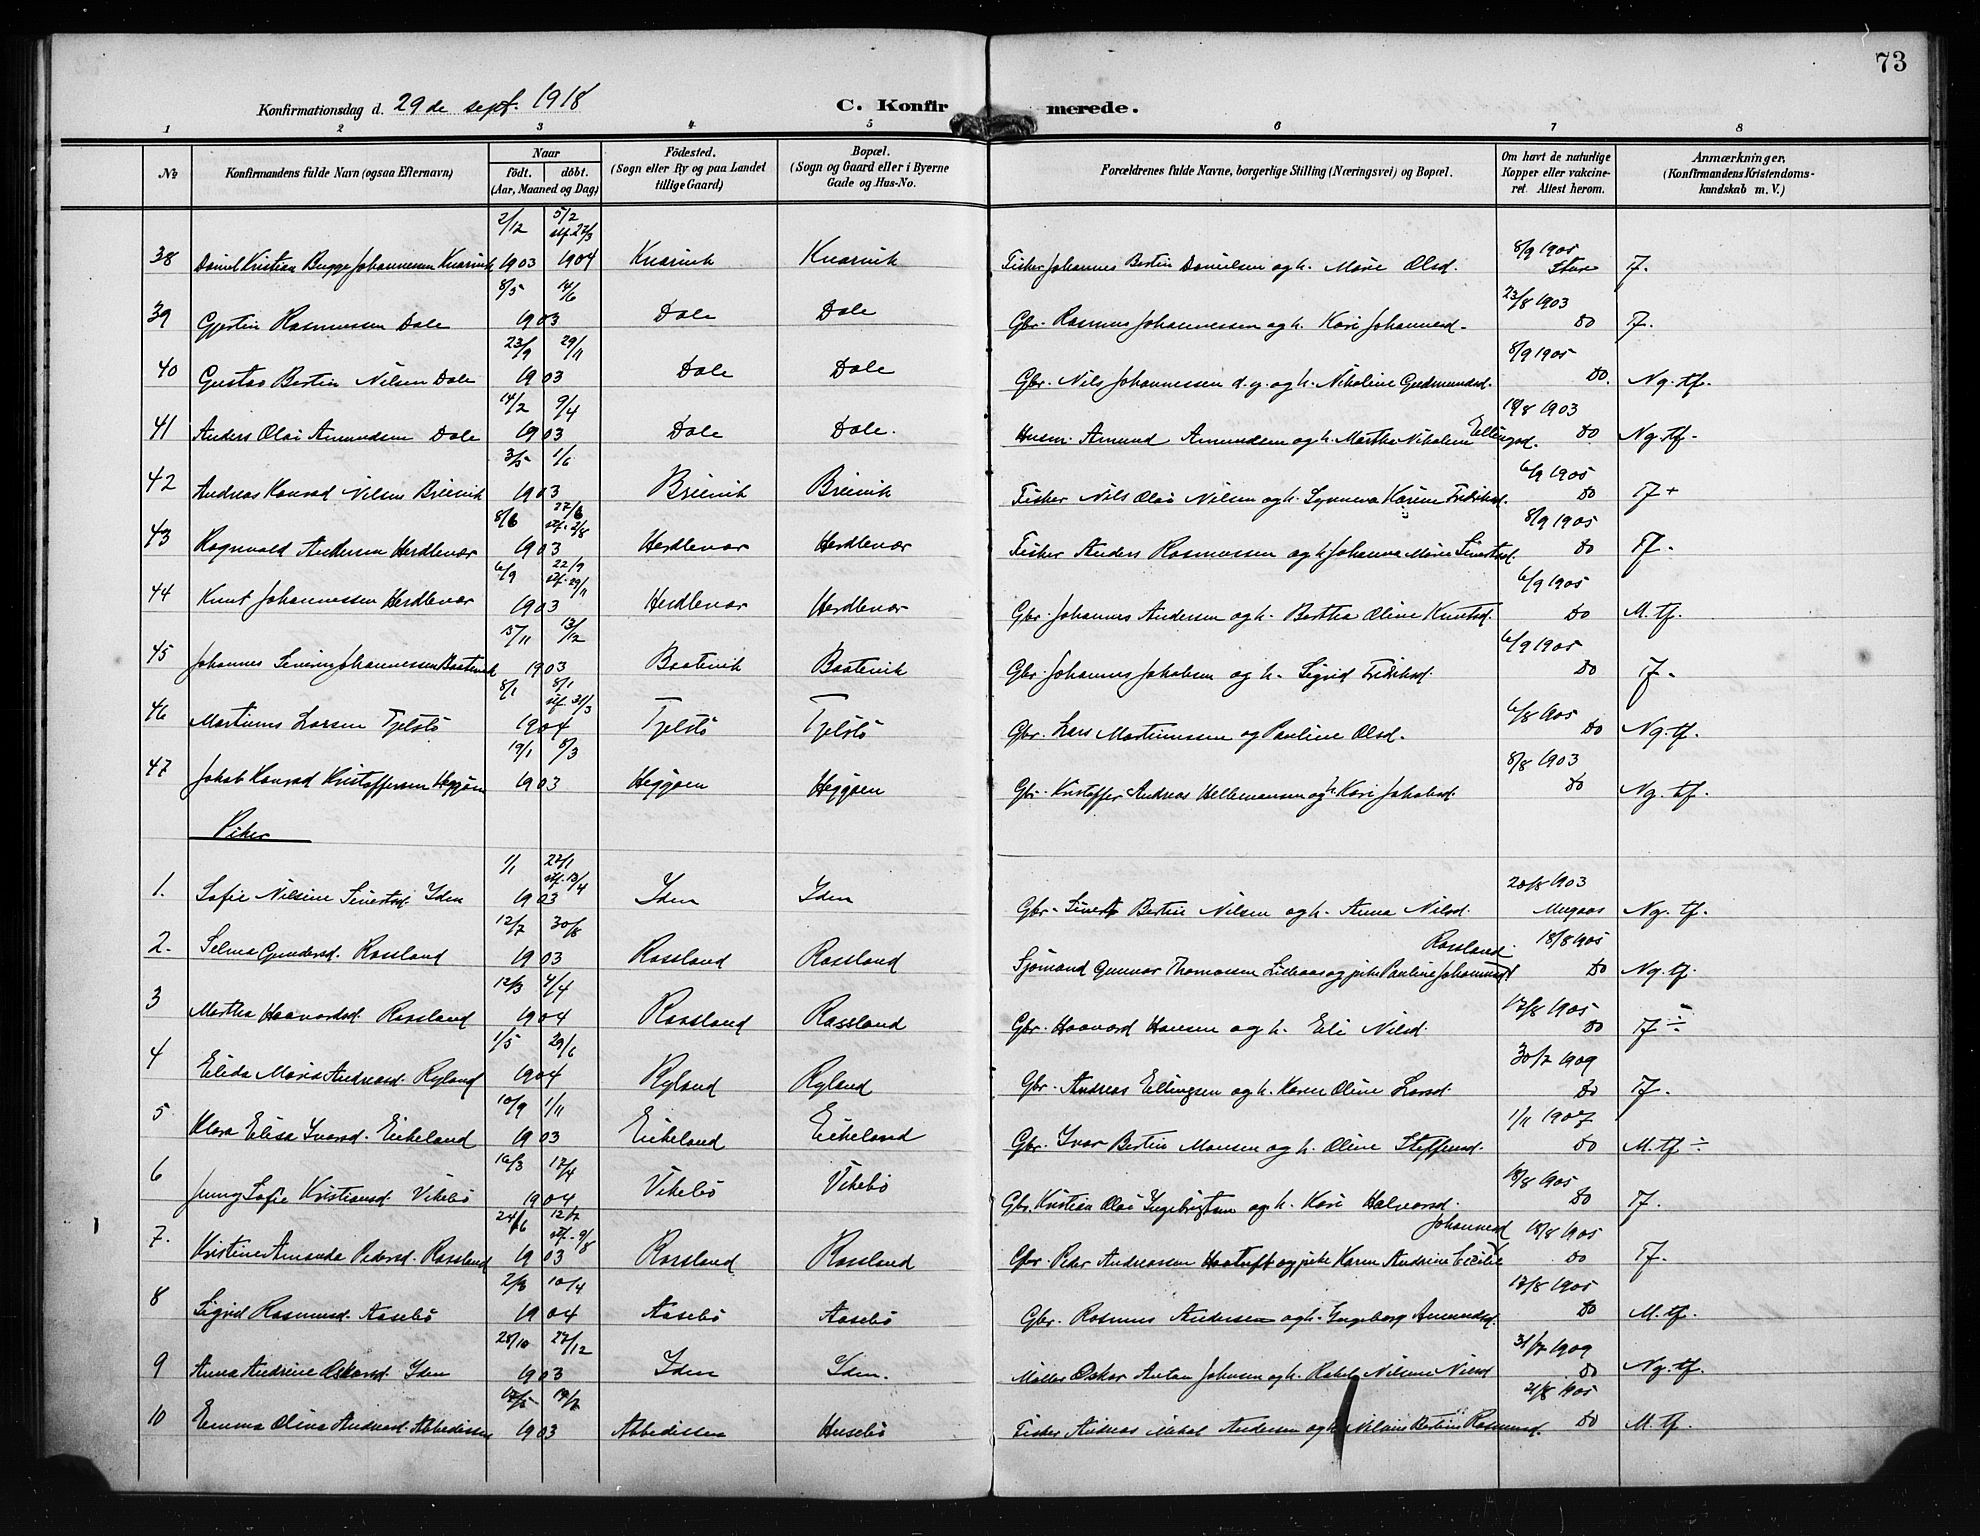 73
Konfirmationsdag d. 29de sept. 1918
C. Konfirmerede.
1 2 3 4 5 6 7 8
No
Konfirmandens fulde Navn (ogsaa Efternavn)
Naar
födt. döbt.
(Aar, Maaned og Dag)
Födested.
(Sogn eller By og paa Landet
tillige Gaard)
Bopæl.
(Sogn og Gaard eller i Byerne
Gade og Hus-No.
Forældrenes fulde Navne, borgerlige Stilling (Næringsvei) og Bopæl.
Om havt de naturlige
Kopper eller vakcine-
ret. Attest herom.
Anmærkninger,
(Konfirmandens Kristendoms-
kundskab m. V.)
2/12 5/2 stf. 27/3 8/9 1905
38 Daniel Kristian Bugge Johannessen Knarvik 1903 1904 Knarvik Knarvik Fisker Johannes Bertin Danielsen og h. Marie Olsd. Sture Tf.
8/5 14/6 23/8 1903
39 Gjertin Rasmussen Dale 1903 Dale Dale Gbr. Rasmus Johannessen og h. Kari Johannesd. Do Tf.
23/9 29/11 8/9 1905
40 Gustav Bertin Nilsen Dale 1903 Dale Dale Gbr. Nils Johannessen d.y. og h. Nikoline Gudmundsd. Do. Ng. tf.
14/2 9/4 18/8 1903
41 Anders Olai Amundsen Dale 1903 Dale Dale. Husm. Amund Amundsen og h. Martha Nikoline Ellingsd. Do Ng. tf.
3/5 1/6 6/9 1905
42 Andreas Konrad Nilsen Breivik 1903 Breivik Breivik Fisker Nils Olai Nilsen og h. Synneva Karine Fredriksd. Do Tf +
8/6 27/6 stf. 2/8 8/9 1905
43 Ragnvald Andersen Herdlevær 1903 Herdlevær Herdlevær Fisker Anders Rasmussen og h. Johanna Marie Sivertsd. Do Tf.
6/9 22/9 stf. 29/11 6/9 1905
44 Knut Johannessen Herdlevær 1903 Herdlevær Herdlevær Gbr. Johannes Andersen og h. Bertha Oline Knutsd. Do M. tf.
15/11 13/12 6/9 1905
45 Johannes Severin Johannessen Baatevik 1903 Baatevik Baatevik Gbr. Johannes Jakobsen og h. Sigrid Fredriksd. Do Tf.
8/1 8/1 stf 31/3 6/8 1905
46 Martinus Larsen Tjelstö 1904 Tjelstö Tjelstö Gbr. Lars Martinussen og Pauline Olsd. Do Ng. tf.
19/1 5/3 8/8 1903
47 Jakob Konrad Kristoffersen Heggöen 1903 Heggöen Heggöen Gbr. Kristoffer Andreas Hellemansen og h. Kari Jakobsd. Do Ng. tf.
Piker
1/1 27/1 stf. 13/4 20/8 1903
1. Sofie Nilsine Sivertsd. Iden 1903 Iden Iden Gbr. Sivert Bertin Nilsen og h. Anna Nilsd. Mugaas Ng. tf.
12/7 30/8 18/8 1905
2. Selma Gunnarsd. Rossland 1903 Rossland Rossland Sjömand Gunnar Thomassen Lilleaas og pike Pauline Johannesd. Rossland Do Ng. tf.
12/3 4/4 17/8 1905
3 Martha Haavardsd. Rossland 1904 Rossland Rossland Gbr. Haavard Hansen og h. Eli Nilsd. Do Tf ÷
1/5 29/6 30/7 1909
4 Elida Maria Andreasd. Ryland 1904 Ryland Ryland Gbr. Andreas Ellingsen og h. Karen Oline Larsd. Do Tf.
10/9 1/11 1/11 1907
5 Klara Elisa Ivarsd. Eikeland 1903 Eikeland Eikeland Gbr. Ivar Bertin Monsen og h. Oline Steffensd. Do M. tf ÷
16/3 17/4 18/8 1905
6 Jenny Sofie Kristiansd. Vikebö 1904 Vikebö Vikebö Gbr. Kristian Olai Ingebrigtsen og h. Kari Halvorsd. Do Tf.
24/6 12/7 stf. 9/8 18/8 1905
7. Kristine Amanda Pedersd. Rossland 1903 Rossland Rossland Gbr. Peder Andreassen Haatuft og pike Karen Andrine Cecilie Johannesd Do Tf.
2/3 10/4 17/8 1905
8 Sigrid Rasmusd. Aasebö 1904 Aasebö Aasebö Gbr. Rasmus Andersen og h. Ingeborg Amundsd. Do M. tf.
28/10 27/12 31/7 1909
9 Anna Andrine Oskarsd. Iden 1903 Iden Iden. Möller Oskar Anton Johnsen og h. Rakel Nilsine Nilsd Do Ng. tf.
21/8 1905
10 Emma Olina Andreasd. Abbedissen 1903 Abbedissen Husebö Fisker Andreas Mikal Andersen og h. Bertine Rasmusd. Do M. tf.